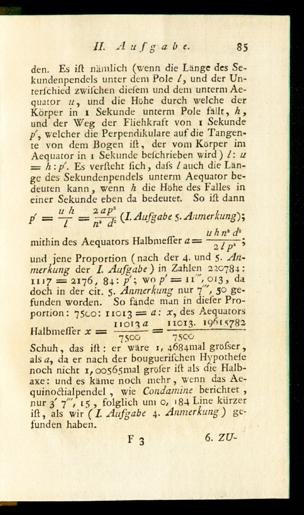 II. Aufgabe. 85
den. Es ist nämlich (wenn die Länge des Se-
kundenpendels unter dem Pole l, und der Un-
terschied zwischen diesem und dem unterm Ae-
quator u, und die Höhe durch welche der
Körper in 1 Sekunde unterm Pole fällt, h,
und der Weg der Fliehkraft von 1 Sekunde
p', welcher die Perpendikulare auf die Tangen-
te von dem Bogen ist, der vom Körper im
Aequator in 1 Sekunde beschrieben wird) l: u
= h: p'. Es versteht sich, dass l auch die Län-
ge des Sekundenpendels unterm Aequator be-
deuten kann, wenn h die Höhe des Falles in
einer Sekunde eben da bedeutet. So ist dann
p' = u h / l = 2 a p² / n² d² (I. Aufgabe 5. Anmerkung);
mithin des Aequators Halbmesser a = u h n² d² / 2 l p²;
und jene Proportion (nach der 4. und 5. An-
merkung der I. Aufgabe) in Zahlen 220784:
1117 = 2176, 84: p'; wo p' = 11''', 013, da
doch in der cit. 5. Anmerkung nur 7''', 50 ge-
funden worden. So fände man in dieser Pro-
portion: 7500: 11013 = a: x, des Aequators
Halbmesser x = 11013 a / 7500 = 11013. 19615782 / 7500
Schuh, das ist: er wäre 1, 4684mal grösser,
als a, da er nach der bouguerischen Hypothese
noch nicht 1, 00565mal grösser ist als die Halb-
axe: und es käme noch mehr, wenn das Ae-
quinoctialpendel, wie Condamine berichtet,
nur 3' 7''', 15, folglich um 0, 184 Line kürzer
ist, als wir (I. Aufgabe 4. Anmerkung) ge-
funden haben.
F 3 6. ZU-